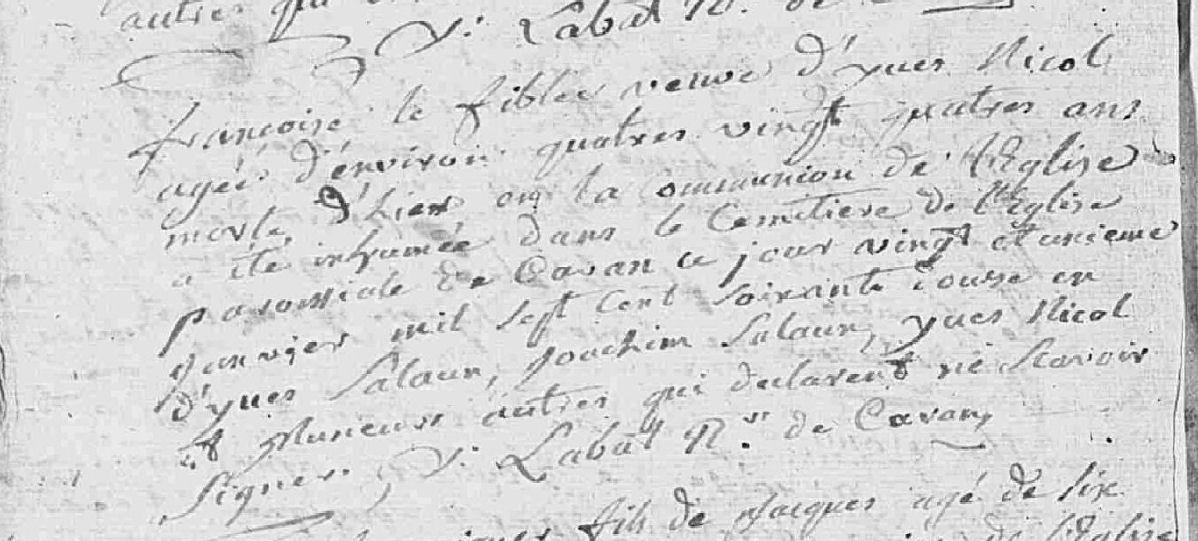 autres qui
Y. Labat R. de
françoise le fiblec veuve d'yves Nicol
agée d'énviron quatres vingt quatres ans
morte d'hier en la Communion de l'Eglise
a été inhumée dans le Cemetiere de l'Eglise
paroissiale de Cavan ce jour vingt et unieme
janvier mil sept cent soixante douze en
d'yves Salaun, Joachim Salaun, yves Nicol
et plusieurs autres qui declarent ne scavoir
signer, Y. Labat R.r de Cavan,
fils de Jacques agé de six
de l'Eglise